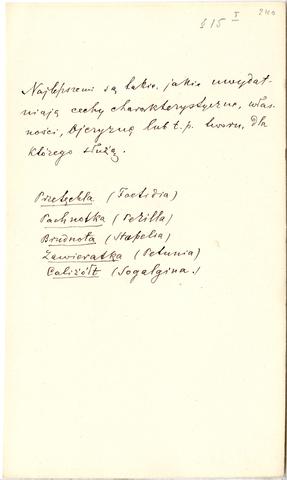 115 I
Najlepszemi są takie, jakie uwydat-
niają cechy charakterystyczne, włas-
ności, Ojczyznę lub t. p. tworu, dla
którego służą.
(Foetidia)
Pachnotka (Perilla)
Brudnota (Stapelia)
Zawieratka (Petunia)
Caliżółt (Sogalgina.)